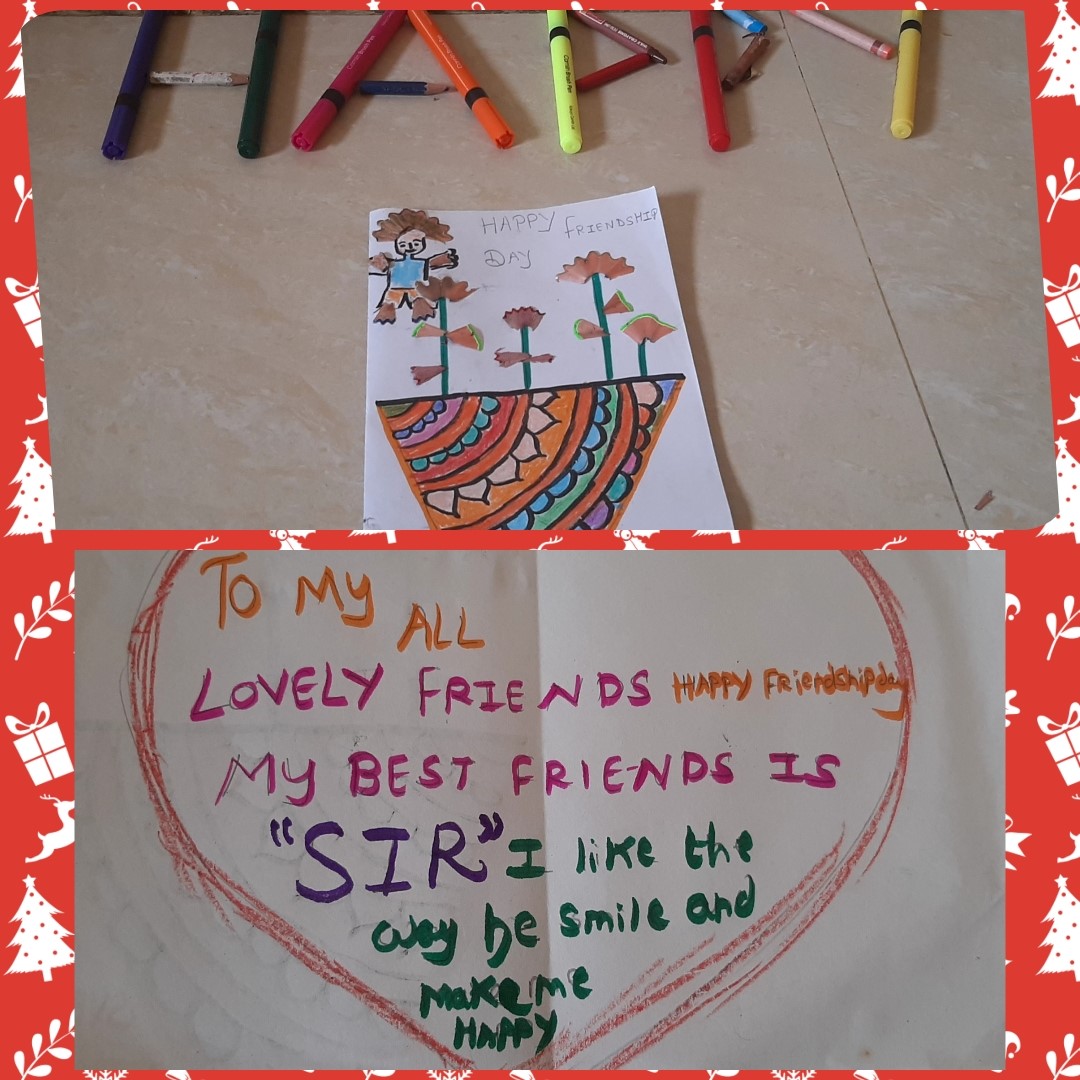 HAPPY
HAPPY FRIENDSHIP
DAY
TO MY ALL
LOVELY FRIENDS HAPPY Friendship day
MY BEST FRIENDS IS
"SIR" I like the
way he smile and
make me
HAPPY